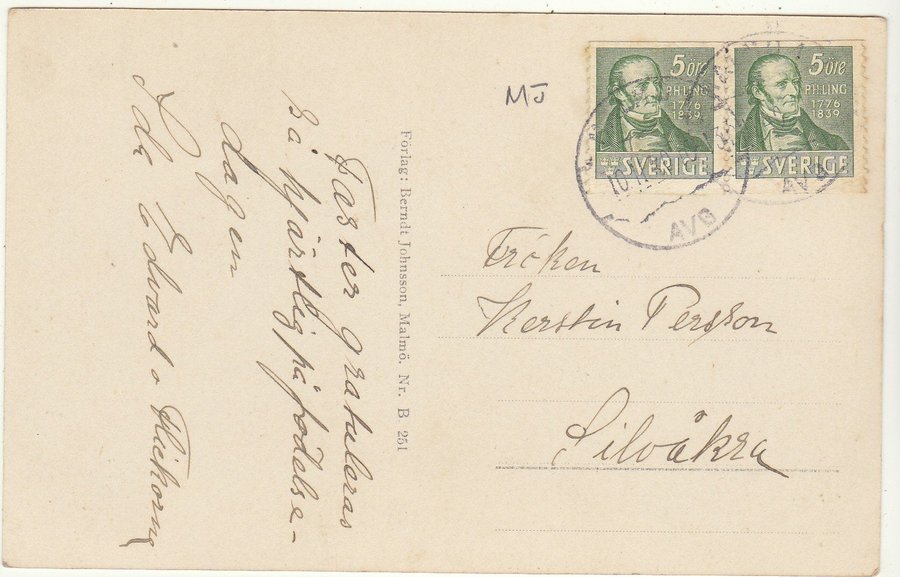 Faster gratuleras
så hjärtlig på födelse-
dagen
Ida Edvard o Flickorna
Förlag: Berndt Johnsson, Malmö. Nr. B 251
MJ
5 öre
P.H.LING
1776
1839
SVERIGE
5 öre
P.H.LING
1776
1839
SVERIGE
AVG
AVG
Fröken
Kerstin Persson
Silvåkra